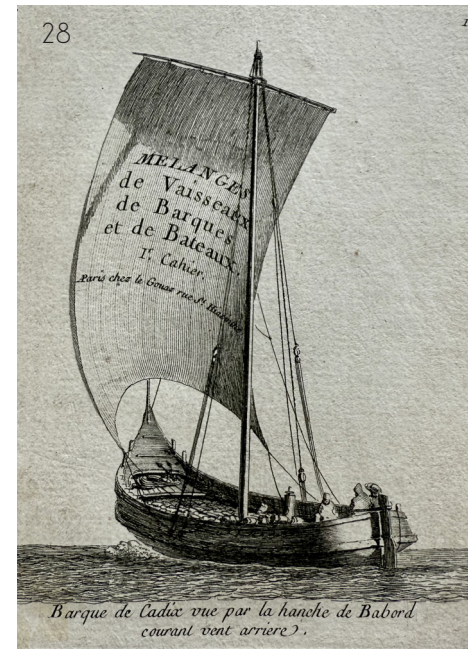 28
1
MELANGES
de Vaisseaux
de Barques
et de Bateaux.
Ir. Cahier.
Paris chez le Gouaz rue St.
Barque de Cadix vue par la hanche de Babord
courant vent arriere).